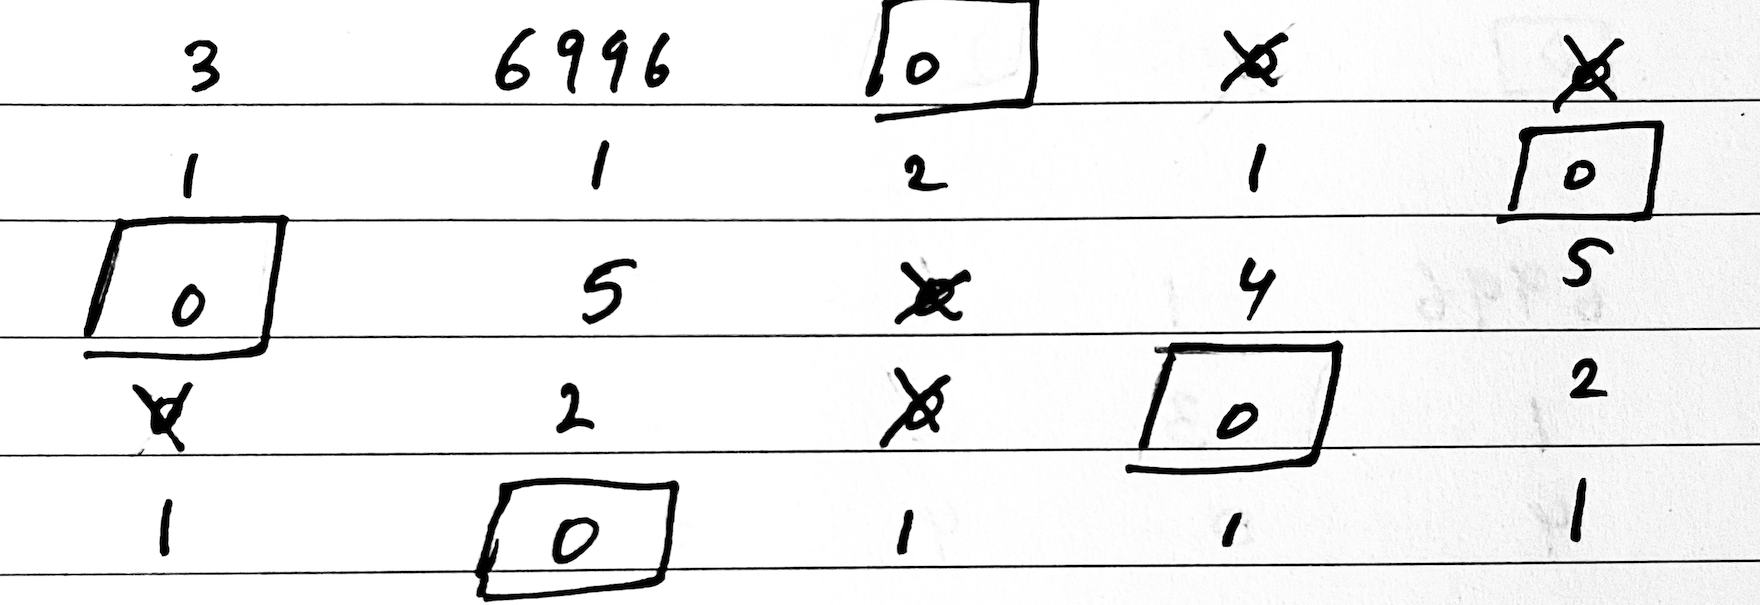 3 6996 0 0 0
1 1 2 1 0
0 5 0 4 5
0 2 0 0 2
1 0 1 1 1